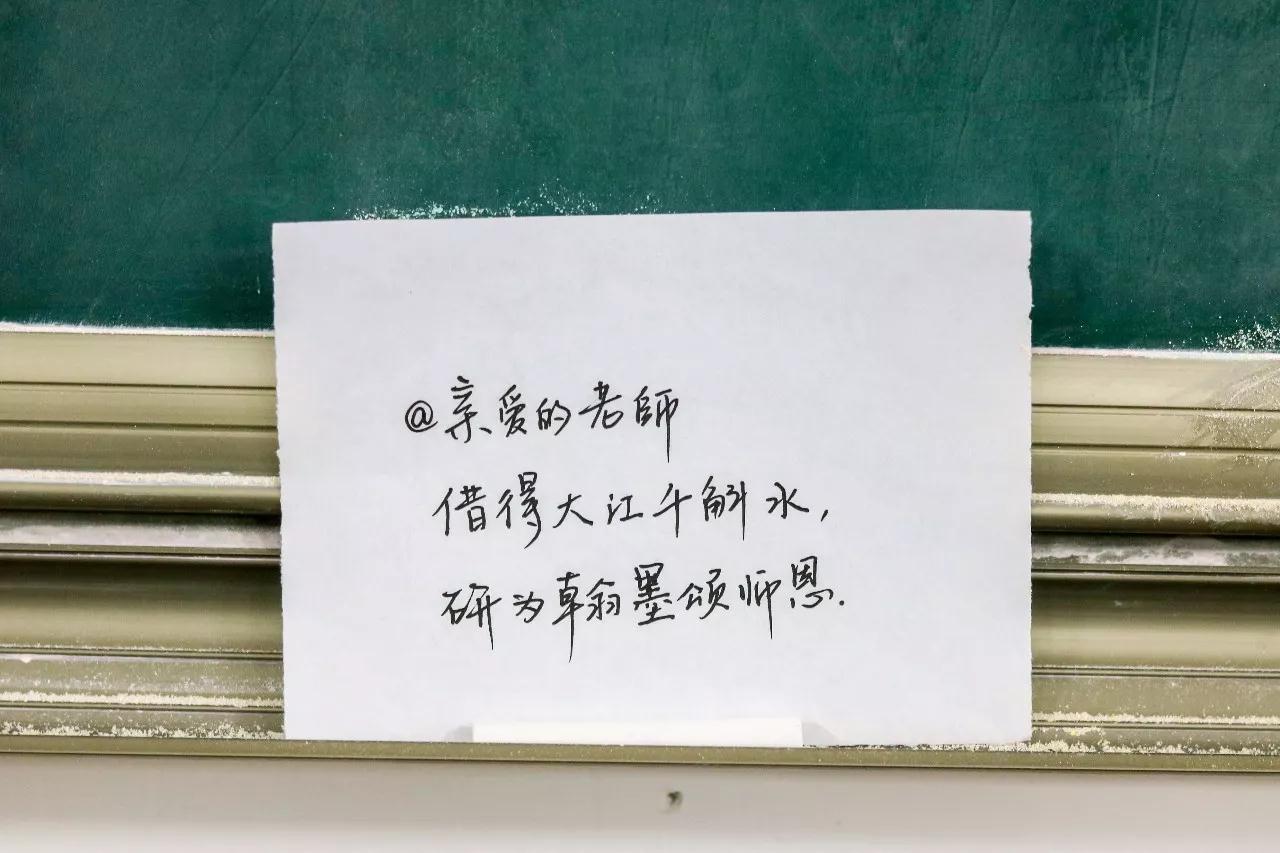 @亲爱的老師
借得大江千斛水,
研为翰墨颂师恩.